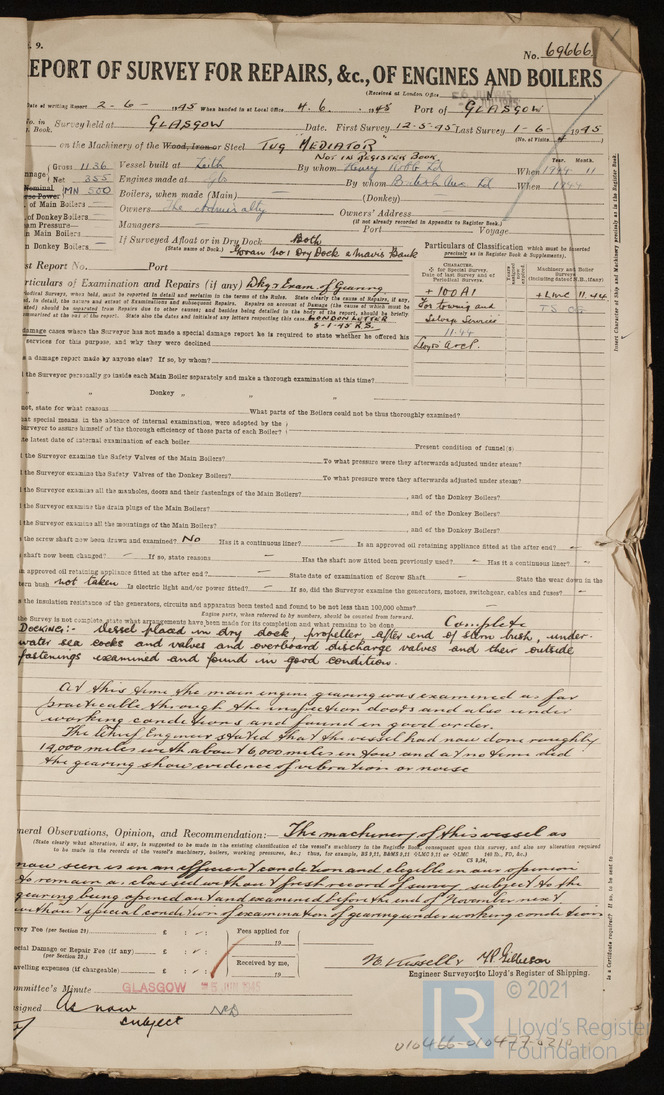 . 9.
No. 69666
EPORT OF SURVEY FOR REPAIRS, &c., OF ENGINES AND BOILERS
(Received at London Office
Date of writing Report 2-6- 1945 When handed in at Local Office 4.6. 1945 Port of GLASGOW
No. in Survey held at GLASGOW Date. First Survey 12-5-45 Last Survey 1-6- 1945
. Book. (No. of Visits 4
on the Machinery of the Wood, Iron or Steel TUG "MEDIATOR"
NOT IN REGISTER BOOK.
Gross 1136 Vessel built at Leith By whom Henry Robb Ld When 1944 11
Year. Month.
Net 355 Engines made at Gls By whom British Aux Ld When 1944
MN 500 Boilers, when made (Main) (Donkey)
of Main Boilers Owners The Admiralty Owners' Address
(if not already recorded in Appendix to Register Book.)
of Donkey Boilers Managers Port Voyage
n Main Boilers If Surveyed Afloat or in Dry Dock Both
n Donkey Boilers (State name of Dock.) Govan No 1 Dry Dock & Mavis Bank
Particulars of Classification which must be inserted precisely as in Register Book & Supplements).
st Report No. Port
CHARACTER. ✠ for Special Survey. Date of last Survey and of Periodical Surveys.
Machinery and Boiler Surveys (including dates of N.B., if any).
+ 100A1
For towing and
Salvage Service
11.44
Lloyd's Arcl.
+ LMC 11.44
articulars of Examination and Repairs (if any) Dkg & Exam. of Gearing
LONDON LETTER
damage cases where the Surveyor has not made a special damage report he is required to state whether he offered his
services for this purpose, and why they were declined
a damage report made by anyone else? If so, by whom?
the Surveyor personally go inside each Main Boiler separately and make a thorough examination at this time?
" " Donkey " " "
not, state for what reasons What parts of the Boilers could not be thus thoroughly examined?
at special means, in the absence of internal examination, were adopted by the
urveyor to assure himself of the thorough efficiency of those parts of each Boiler?
e latest date of internal examination of each boiler Present condition of funnel(s)
the Surveyor examine the Safety Valves of the Main Boilers? To what pressure were they afterwards adjusted under steam?
the Surveyor examine the Safety Valves of the Donkey Boilers? To what pressure were they afterwards adjusted under steam?
the Surveyor examine all the manholes, doors and their fastenings of the Main Boilers? , and of the Donkey Boilers?
the Surveyor examine the drain plugs of the Main Boilers? , and of the Donkey Boilers?
the Surveyor examine all the mountings of the Main Boilers? , and of the Donkey Boilers?
the screw shaft now been drawn and examined? No Has it a continuous liner? - Is an approved oil retaining appliance fitted at the after end? -
shaft now been changed? - If so, state reasons - Has the shaft now fitted been previously used? - Has it a continuous liner? -
n approved oil retaining appliance fitted at the after end? - State date of examination of Screw Shaft - State the wear down in the
tern bush not taken Is electric light and/or power fitted? - If so, did the Surveyor examine the generators, motors, switchgear, cables and fuses? -
s the insulation resistance of the generators, circuits and apparatus been tested and found to be not less than 100,000 ohms?
Engine parts, when referred to by numbers, should be counted from forward.
the Survey is not complete, state what arrangements have been made for its completion and what remains to be done Complete
DOCKING:- Vessel placed in dry dock, propeller, after end of stern bush, under-
water sea cocks and valves and overboard discharge valves and their outside
fastenings examined and found in good condition.
At this time the main engine gearing was examined as far
practicable through the inspection doors and also under
working conditions and found in good order.
The Chief Engineer stated that the vessel had now done roughly
19,000 miles with about 6,000 miles in tow and at no time did
the gearing show evidence of vibration or noise
neral Observations, Opinion, and Recommendation:- The machinery of this vessel as
(State clearly what alteration, if any, is suggested to be made in the existing classification of the vessel's machinery in the Register Book, consequent upon this survey, and also any alteration required
to be made in the records of the vessel's machinery, boilers, working pressures, &c.; thus, for example,
now seen is in an efficient condition and eligible in our opinion
to remain as classed without fresh record of survey subject to the
gearing being opened out and examined before the end of November next
without special condition of examination of gearing under working conditions
rvey Fee (per Section 29) £ : :
ecial Damage or Repair Fee (if any) £ : :
(per Section 29.)
avelling expenses (if chargeable) £ : :
Fees applied for
19
Received by me,
19
Engineer Surveyors to Lloyd's Register of Shipping.
ommittee's Minute GLASGOW 5 JUN 1945
signed As now
subject
© 2021
LR
Lloyd's Register
Foundation
010466-010477-0210
Insert Character of Ship and Machinery precisely as in the Register Book.
Is a Certificate required? If so, to be sent to